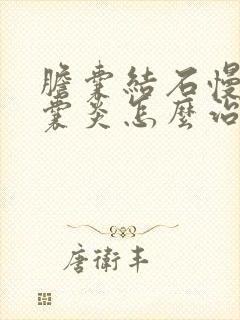 膽囊結石慢
囊炎怎麼治
唐衛丰